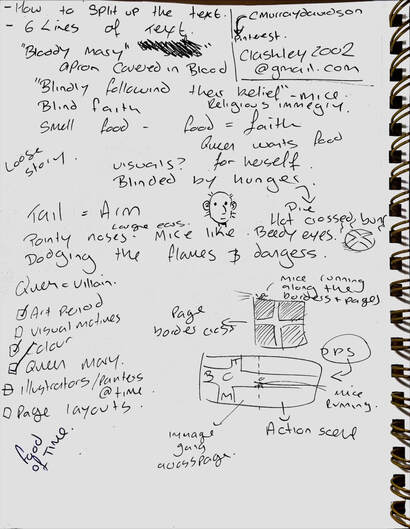 - How to split up the text.
- 6 Lines of Text.
CMurraydavidson
Pinterest.
Clashley2002
@gmail.com
"Bloody Mary"
apron Covered in Blood
"Blindly followind their belief" - mice.
Blind faith
Religious immegiry.
Small food - food = faith
Queen waits food
for herself.
Loose
story.
visuals?
Blinded by hunger.
Tail = Arm
Large ears.
Pointy noses. Mice like. Beedy eyes.
Hot crossed buns
Dodging the flames & dangess.
Queen = villain.
Art Period
Visual motives
Colour
Queen Mary.
Illustrators/Painters
@ time.
Page layouts.
food
of
Time.
mice running
along the
borders + pages
Page
border cross
DPS
B
C
M
mice
running.
Immage
going
across page.
Action scene